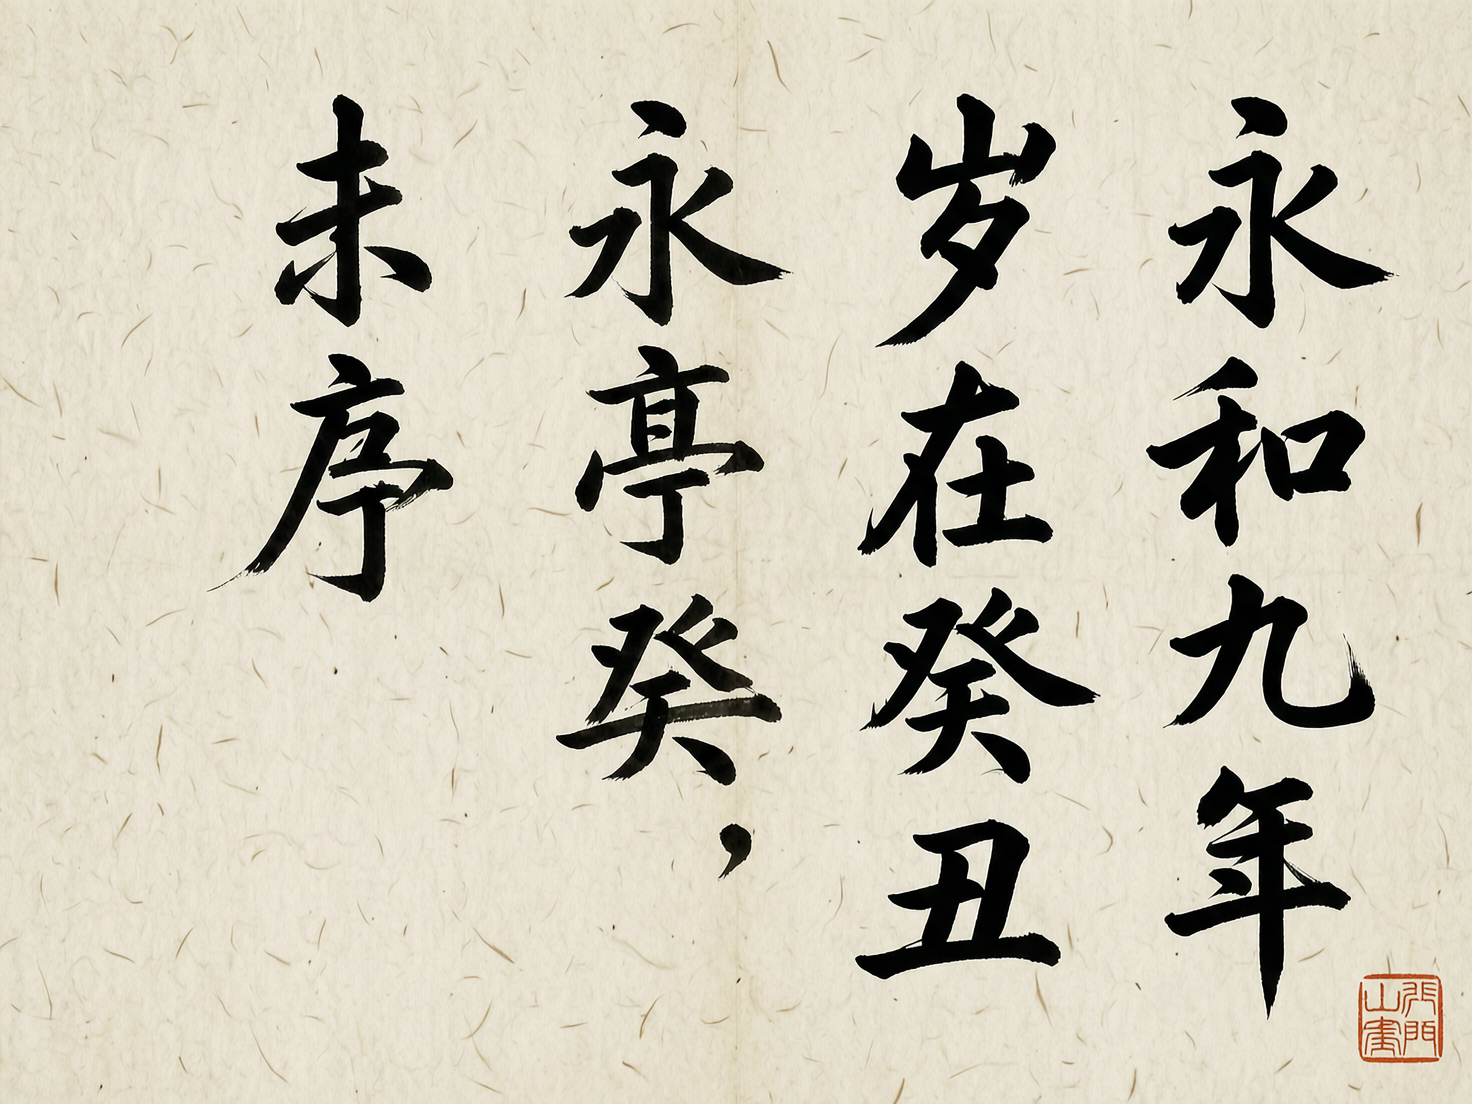 永和九年
岁在癸丑
永亭癸，
未序